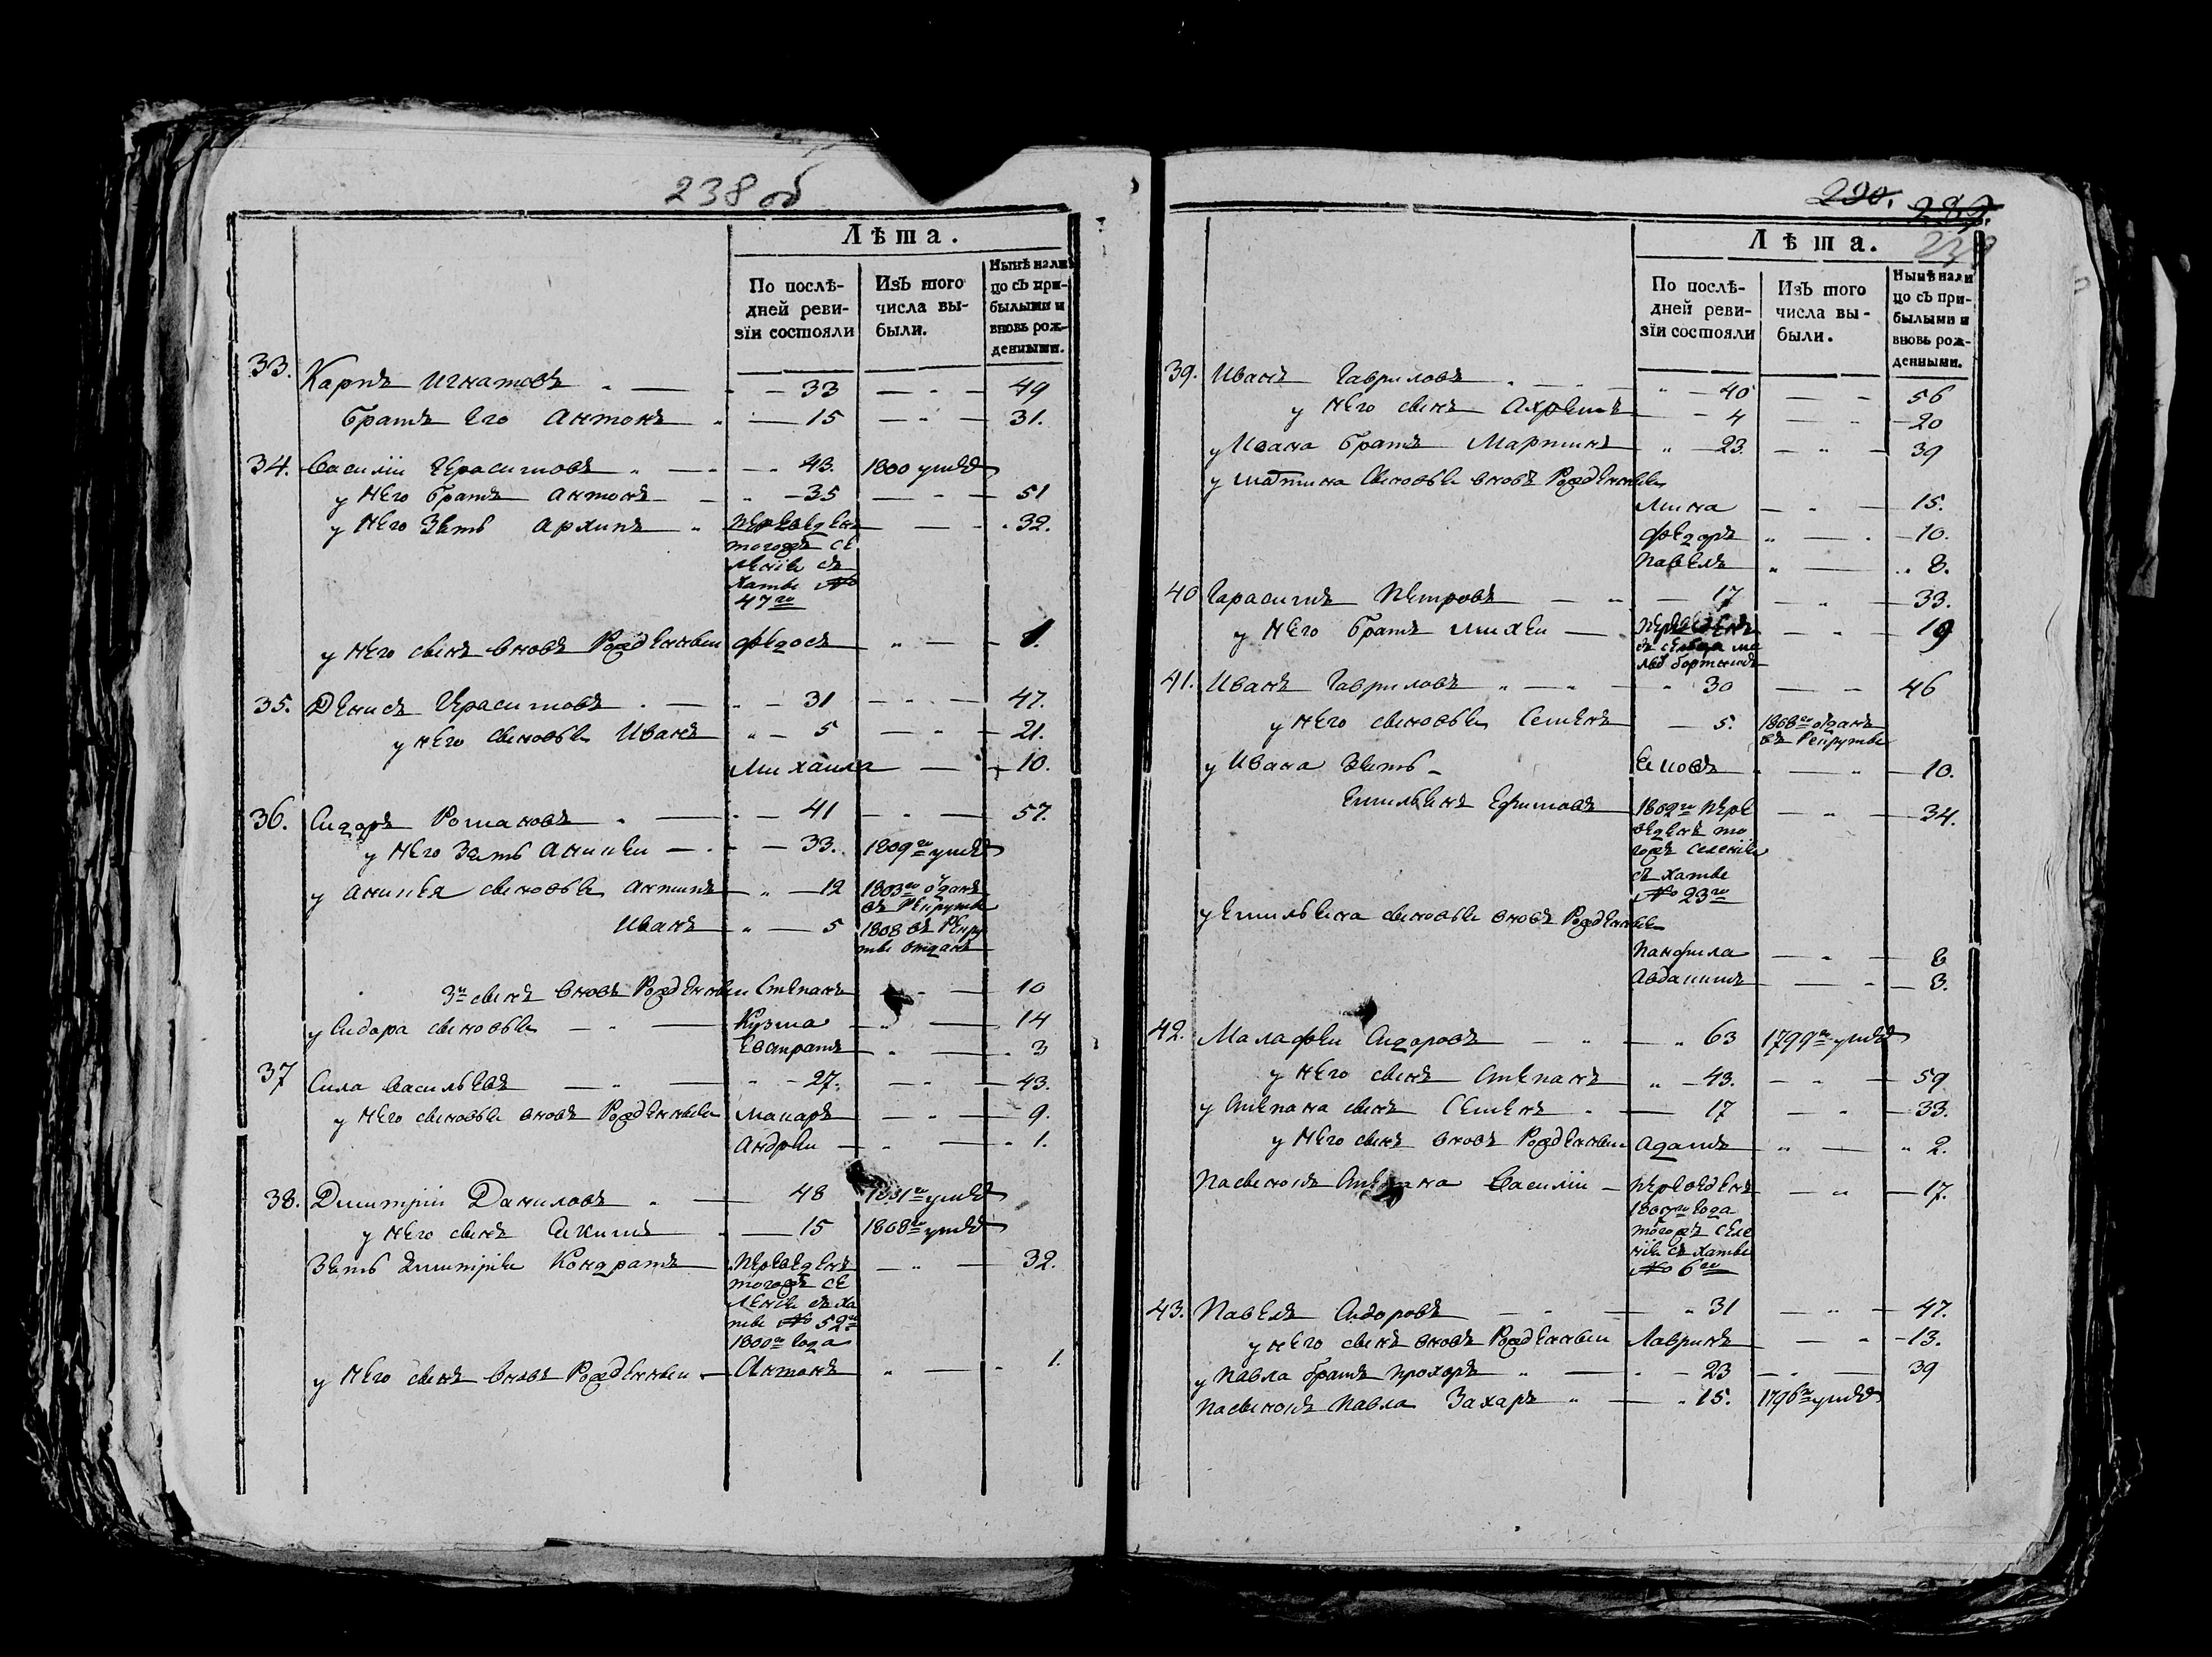 238 об
Лѣта.
По послѣ-
дней реви-
зіи состояли
Изъ того
числа вы-
были.
Нынѣ нали
цо съ при-
былыми и
вновь рож-
денными.
33. Карпъ Игнатовъ — 33 — 49
братъ Его Антонъ — 15 — 31.
34. Василіи Герасимовъ — 43. 1800 умре
у него братъ Антонъ — 35 — 51
у него Зять Архипъ Переведенъ — 32.
тогожъ се
ленія съ
хаты №
47го
у него сынъ вновь Рожденныи Федосъ — 1.
35. Денисъ Герасимовъ — 31 — 47.
у него сыновья Иванъ — 5 — 21.
Михаила — 10.
36. Сидоръ Романовъ — 41 — 57.
у него Зять Аникеи — 33. 1809го умре
у Аникея сыновья Антипъ — 12 1803го отданъ
въ Рекруты
Иванъ — 5 1808 въ Рекру
ты отданъ
3и сынъ вновь Рожденныи Степанъ — 10
у Сидора сыновья — Кузма — 14
Евстратъ — 3
37 Сила Васильевъ — 27. — 43.
у него сыновья вновь Рожденныя Макаръ — 9.
Андреи — 1.
38. Дмитріи Даниловъ — 48 умре
у него сынъ Акимъ — 15 1808го умре
Зять Дмитрія Кондратъ Переведенъ — 32.
тогожъ се
ленія съ ха
ты № 52го
1800го Года
у него сынъ вновь Рожденныи — Антонъ — 1.
290. 289.
239
Лѣта.
По послѣ-
дней реви-
зіи состояли
Изъ того
числа вы-
были.
Нынѣ нали
цо съ при-
былыми и
вновь рож-
денными.
39. Иванъ Гавриловъ — 40 — 56
у него сынъ Ахремъ — 4 — 20
у Ивана братъ Мартинъ — 23. — 39
у сыновья вновь Рожденныя
Мина — 15.
Федоръ — 10.
Павелъ — 8.
40 Гарасимъ Петровъ — 17 — 33.
у него братъ Михеи — Переведенъ — 19
въ сельца ма
лыъ
41. Иванъ Гавриловъ — 30 — 46
у него сыновья Семенъ — 5. 1808го отданъ
въ Рекруты
у Ивана Зять — — 10.
Емильянъ Ефимовъ 1809го пере — 34.
веденъ то
гожъ селенія
съ хаты
№ 23го
у Емильяна сыновья вновь Рожденныя
Панфила — 6
Авдакимъ — 3.
42. Малафеи Сидоровъ — 63 1799го умре
у него сынъ Степанъ — 43. — 59
у Степана сынъ Семенъ — 17 — 33.
у него сынъ вновь Рожденныи Адамъ — 2.
Пасынокъ Степана Василіи — Переведенъ — 17.
Года
тогожъ селе
нія съ хаты
№ 6го
43. Павелъ Сидоровъ — 31 — 47.
у него сынъ вновь Рожденныи Лавринъ — 13.
у Павла братъ Прохоръ — 23 — 39
Пасынокъ Павла Захаръ — 15. 1796го умре